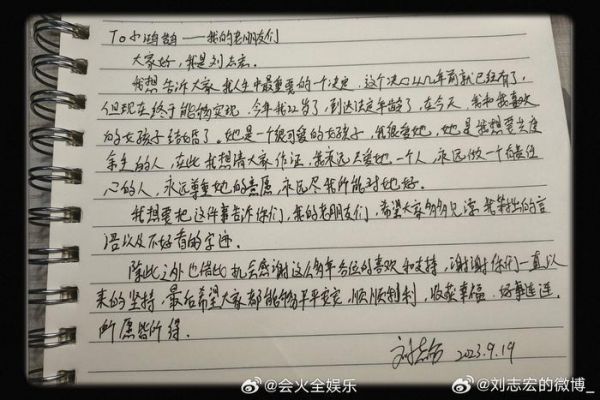 To小鸿鹄——我的老朋友们
大家好，我是刘志宏。
我想告诉大家我人生中最重要的一个决定，这个决心从几年前就已经有了，
但现在终于能够实现，今年我22岁了，到达法定年龄了，在今天，我和我喜欢
的女孩子结婚了。她是一个很可爱的女孩子，我很爱她，她是我想要共度
余生的人，在此我想请大家作证，我永远只爱她一个人，永远做一个有责任
心的人，永远尊重她的意愿，永远尽我所能对她好。
我想要把这件事告诉你们，我的老朋友们，希望大家多多见谅我笨拙的言
语以及不好看的字迹。
除此之外也借此机会感谢这么多年各位的喜欢和支持，谢谢你们一直以
来的坚持，最后希望大家都能够平平安安，顺顺利利，收获幸福，好事连连，
所愿皆所得。
刘志宏 2023.9.19
@会火全娱乐
@刘志宏的微博_